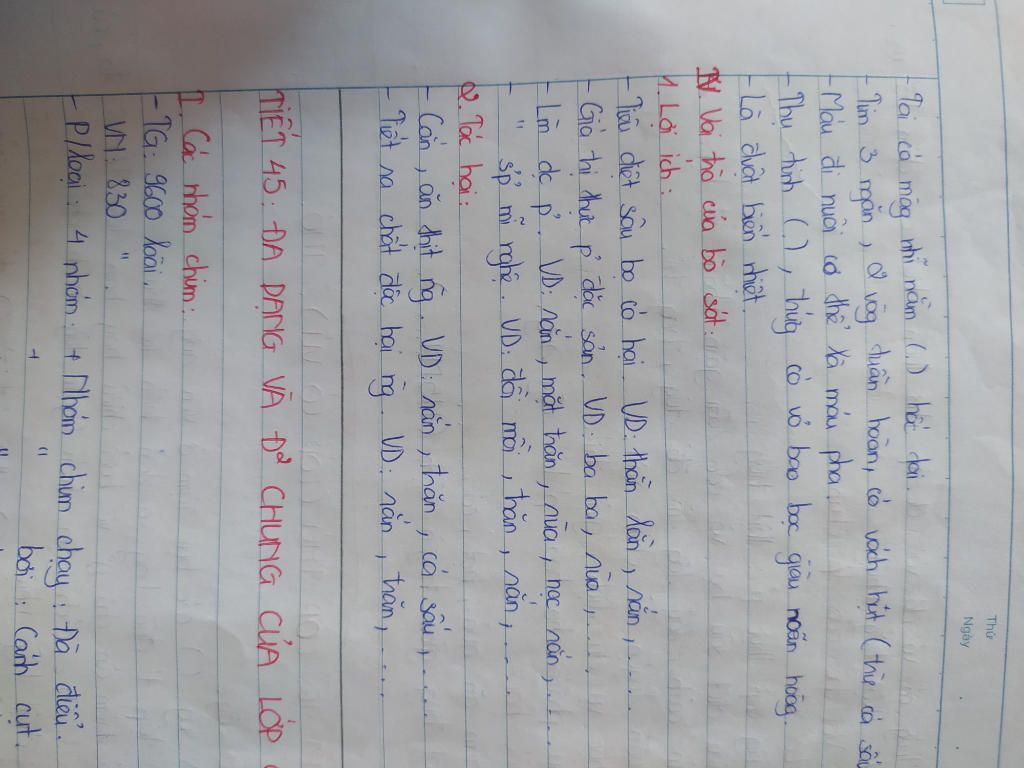 Thứ
Ngày
- Tai có màg nhĩ nằm (.) hốc tai.
- Tim 3 ngăn, 2 vòg tuần hoàn, có vách hụt (trừ cá sấu
- Máu đi nuôi cơ thể là máu pha
- Thụ tinh (.), trứg có vỏ bao bọc giàu noãn hoàg
- Là đvật biến nhiệt.
IV. Vai trò của bò sát:
1. Lợi ích:
- Tiêu diệt sâu bọ có hại. VD: thằn lằn, rắn,....
- Giá trị thực p² đặc sản. VD: ba ba, rùa,....
- Làm dc p². VD: rắn, mật trăn, rùa, nọc rắn,....
- " sp² mĩ nghệ. VD: đồi mồi, trăn, rắn,....
2. Tác hại:
- Cắn, ăn thịt ng. VD: rắn, trăn, cá sấu,....
- Tiết ra chất độc hại ng. VD: rắn, trăn,....
TIẾT 45: ĐA DẠNG VÀ Đ² CHUNG CỦA LỚP
I. Các nhóm chim:
- TG: 9600 loài.
VN: 830 "
- P/loại: 4 nhóm: + Nhóm chim chạy: Đà điểu.
+ " bơi: Cánh cụt.